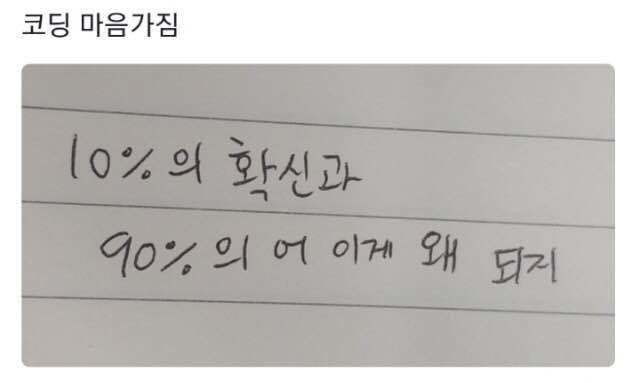 코딩 마음가짐
10%의 확신과
90%의 어 이게 왜 되지